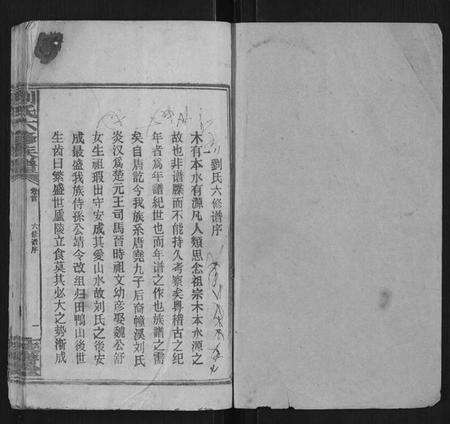 劉氏六修譜序
木有本水有源凡人類思念祖宗木本水源之
故也非譜牒而不能持久考察矣粵稽古之紀
年者為年譜紀世也而年譜之作也族譜之需
矣自唐訖今我族系唐堯九子后裔幢溪刘氏
炎汉為楚元王司馬晉時祖文幼彦娶魏公舒
女生祖瑕出守安成其爱山水故刘氏之後安
成最盛我族侍孫公靖令改组归田鴨山後世
生齿日繁盛世盧陵立食莫其必大之勢漸成
劉氏六修年譜
卷首
六修譜序
一